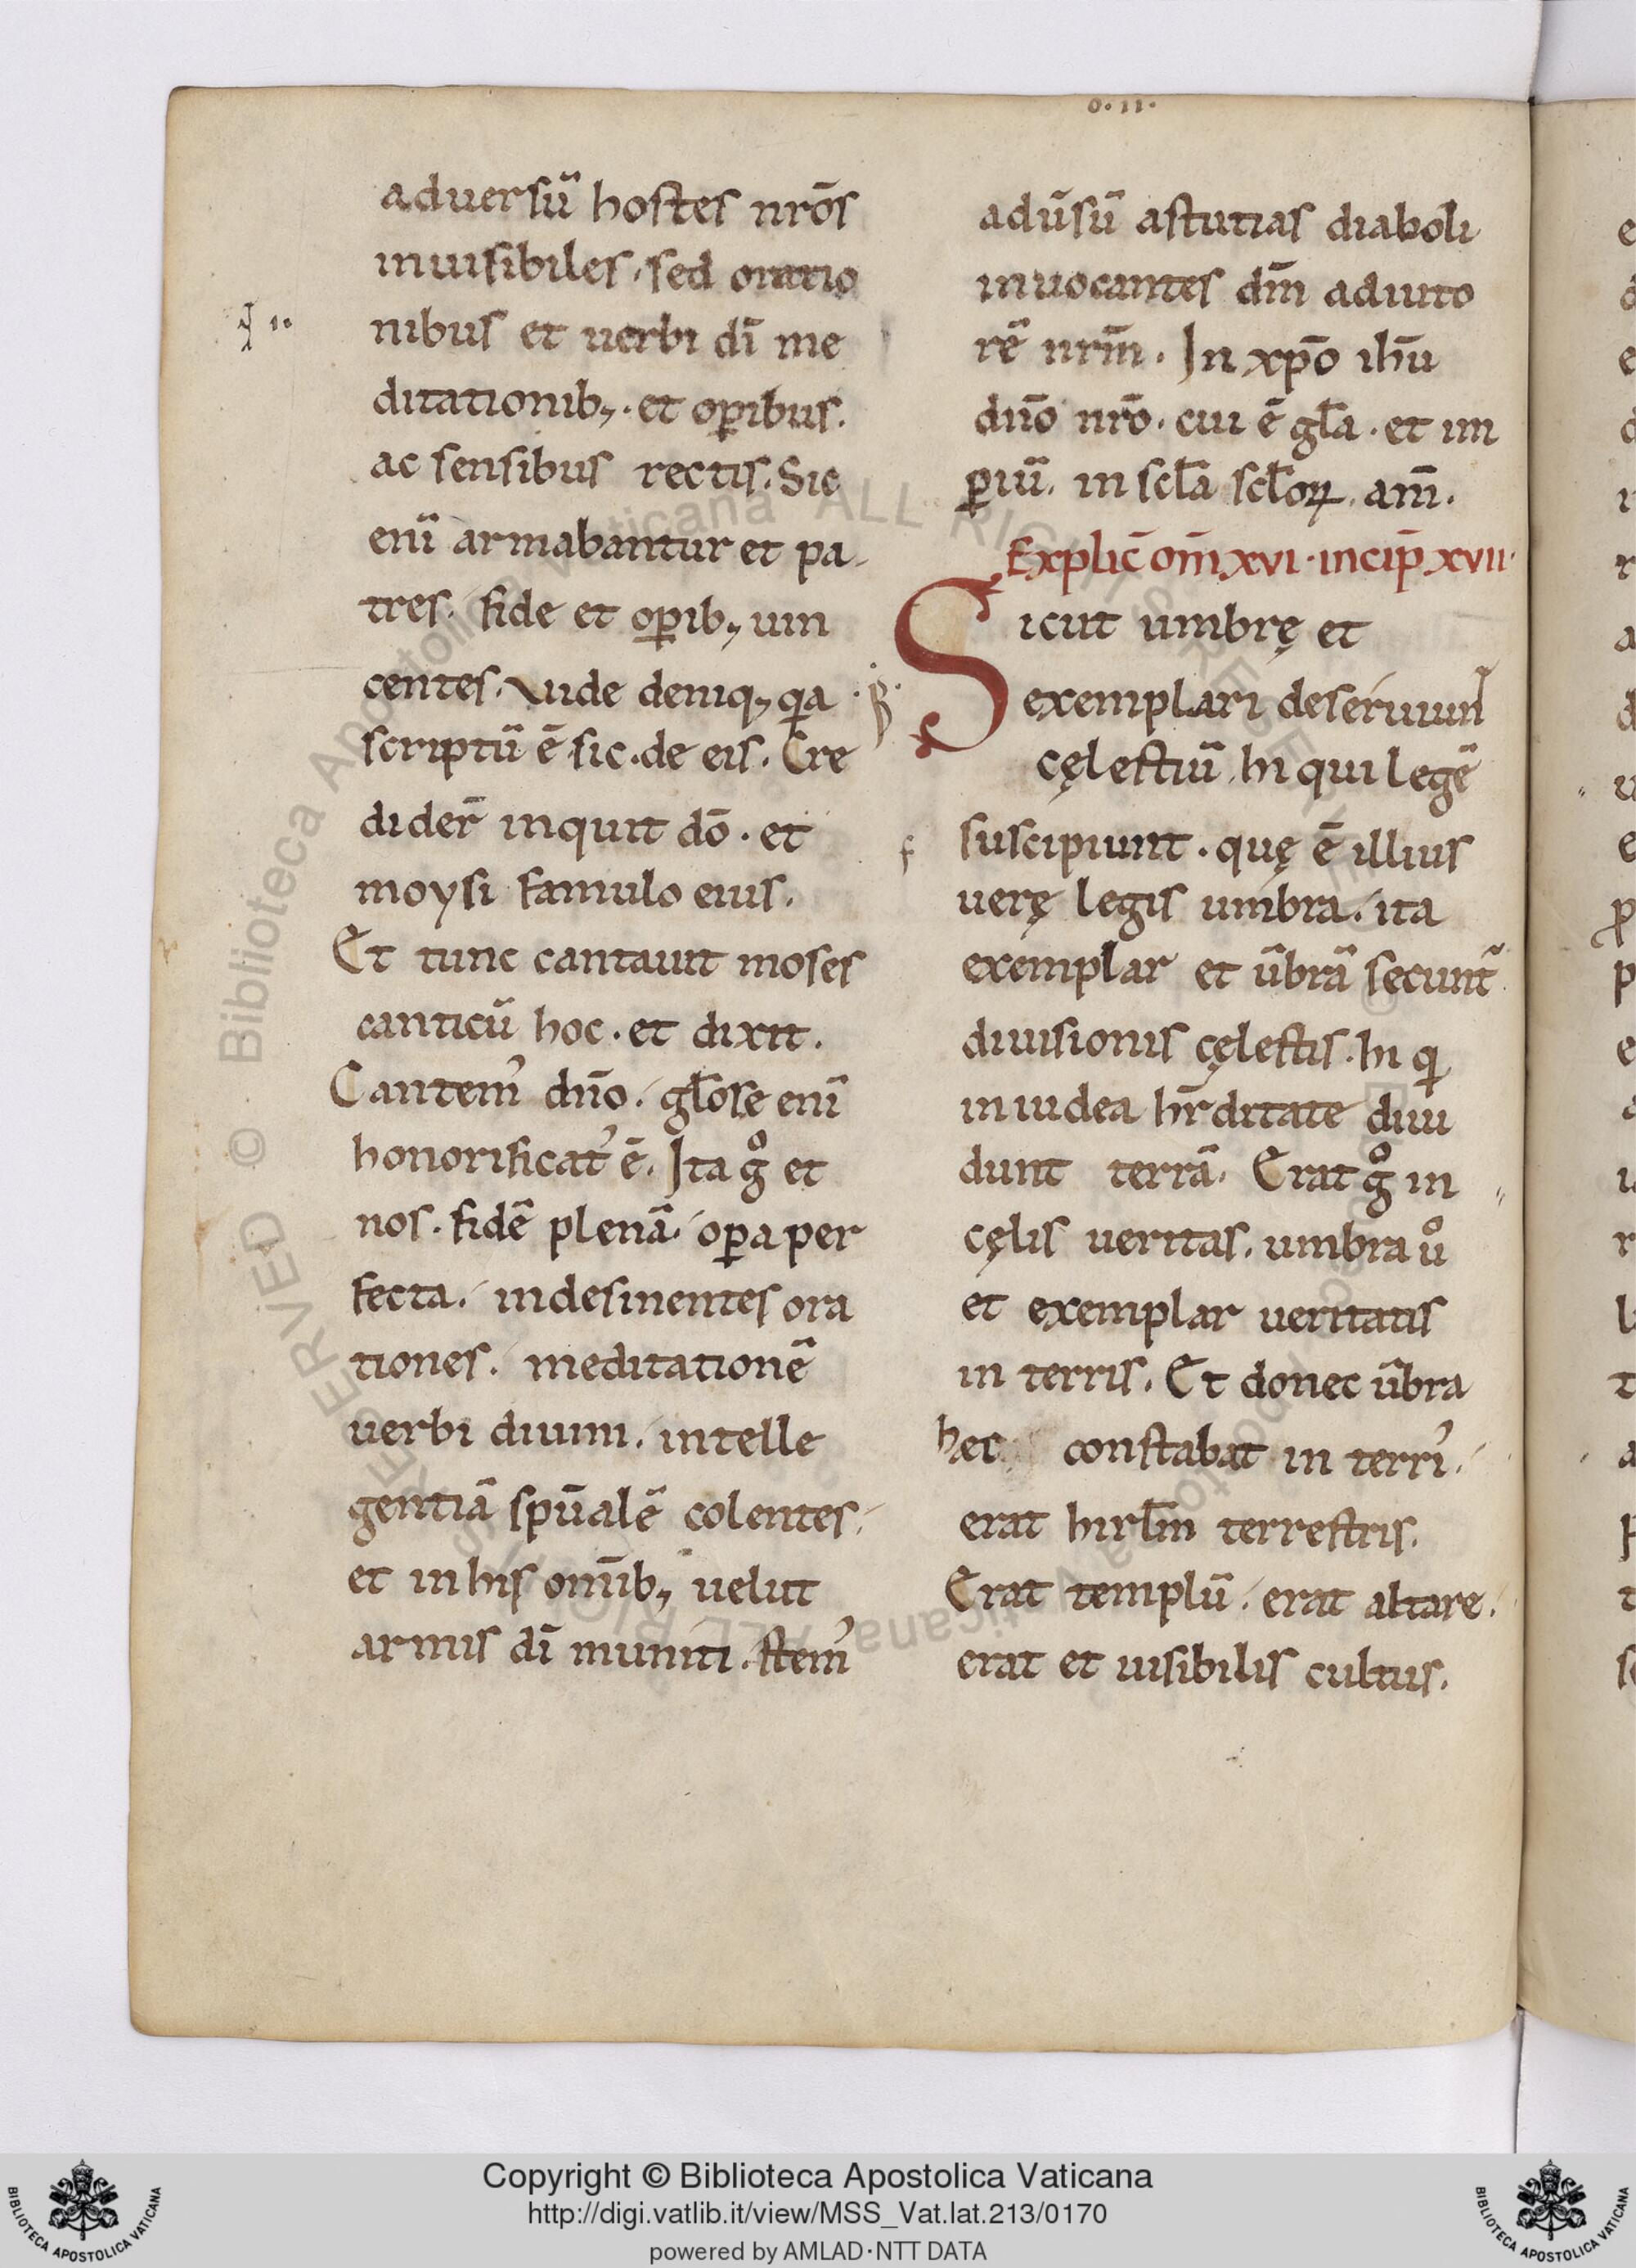 o.ıı.
aduersũ hostes nrōs
inuisibiles, sed oratio
nibus et uerbi dī me
ditationib; . et op̱ibus.
ac sensibus rectis. Sic
enī armabantur et pa-
tres. fide et op̱ib; uin
centes. Vide deniq; qͥa
scriptũ ē sic. de eis. Cre
dider̄ inquit dō . et
moysi famulo eius.
Et tunc cantauit moses
canticũ hoc . et dixit .
Cantem᾽ dn̄o . gl̄ose enī
honorificat᾽ ē. Ita gͦ et
nos. fidē plenā. op̱a per
fecta. indesinentes ora
tiones. meditationē
uerbi diuini. intelle
gentiā sp̄ualē colentes.
et in his om̄ib; uelut
armis dī muniti. stem᾽
adū̄sũ astutias diaboli
inuocantes dm̄ adiuto
rē nrm̄ . In xp̄o ihū
dn̄o nrō . cui ē gl̄a . et im
p̱iũ. in scl̄a scl̄oꝝ. am̄.
Explic̄ om̄ xvi . incip̄ xvii.
Sicut umbrę et
exemplari deseruiun̄
cęlestiũ, hi qui legē
suscipiunt . quę ē illius
uerę legis umbra. ita
exemplar et ũbrā secunt̄
diuisionis cęlestis. hi qͥ
in iudea hr̄ditate diui
dunt terrā. Erat gͦ in
cęlis ueritas. umbra uͦ
et exemplar ueritatis
in terris. Et donec ũbra
hec constabat in terri᾽.
erat hirl̄m terrestris.
Erat templũ. erat altare.
erat et uisibilis cultus.
Copyright © Biblioteca Apostolica Vaticana
http://digi.vatlib.it/view/MSS_Vat.lat.213/0170
powered by AMLAD·NTT DATA
BIBLIOTECA APOSTOLICA VATICANA
BIBLIOTECA APOSTOLICA VATICANA